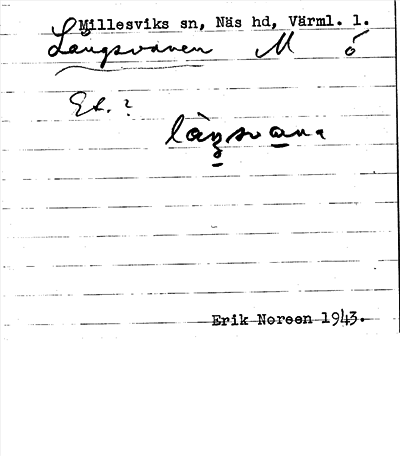 Millesviks sn, Näs hd, Värml. l.
Långsvanen M ó
Et. ?
Erik Noreen 1943.